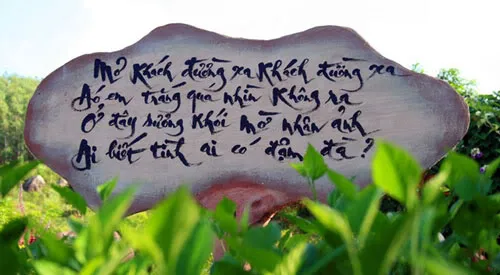 Mơ khách đường xa khách đường xa
Áo em trắng quá nhìn không ra
Ở đây sương khói mờ nhân ảnh
Ai biết tình ai có đậm đà ?